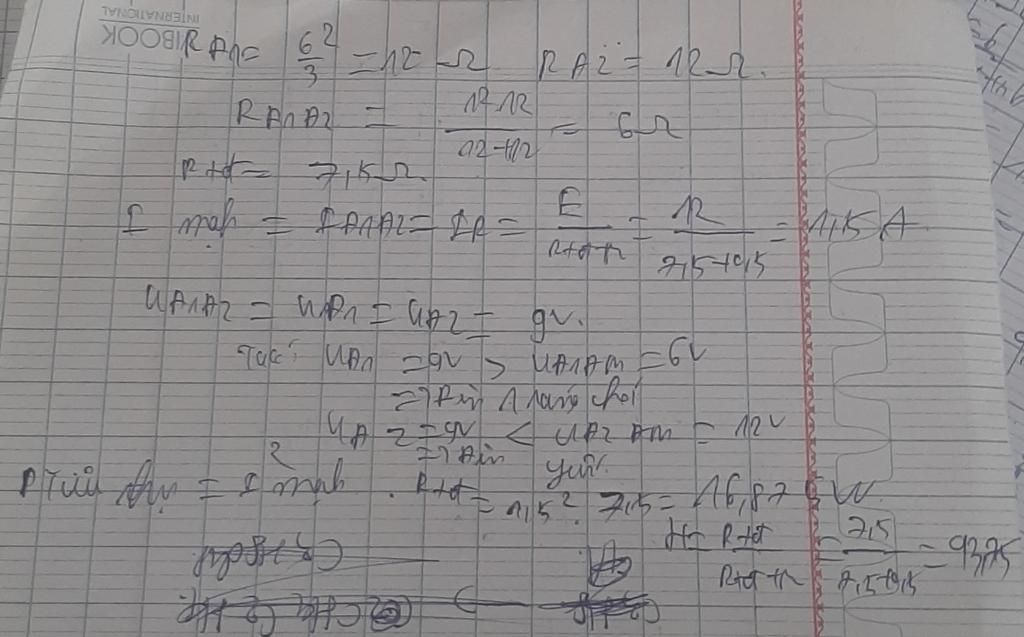 RIBOOK
INTERNATIONAL
R Đ1 = 6²/3 = 12 Ω R Đ2 = 12 Ω.
R Đ1Đ2 = 12.12/12+12 = 6 Ω
Rtđ = 7,5 Ω.
I mạch = I Đ1Đ2 = IR = E/Rtđ+r = 12/7,5+0,5 = 1,5 A.
U Đ1Đ2 = U Đ1 = U Đ2 = 9v.
Ta có: U Đ1 = 9v > U Đ1 ĐM = 6v
=> Đèn 1 sáng chói
U Đ2 = 9v < U Đ2 ĐM = 12v
=> Đèn yếu.
P Tiêu thụ = I² mạch . Rtđ = 1,5² . 7,5 = 16,875 W.
H = Rtđ/Rtđ+r = 7,5/7,5+0,5 = 93,75